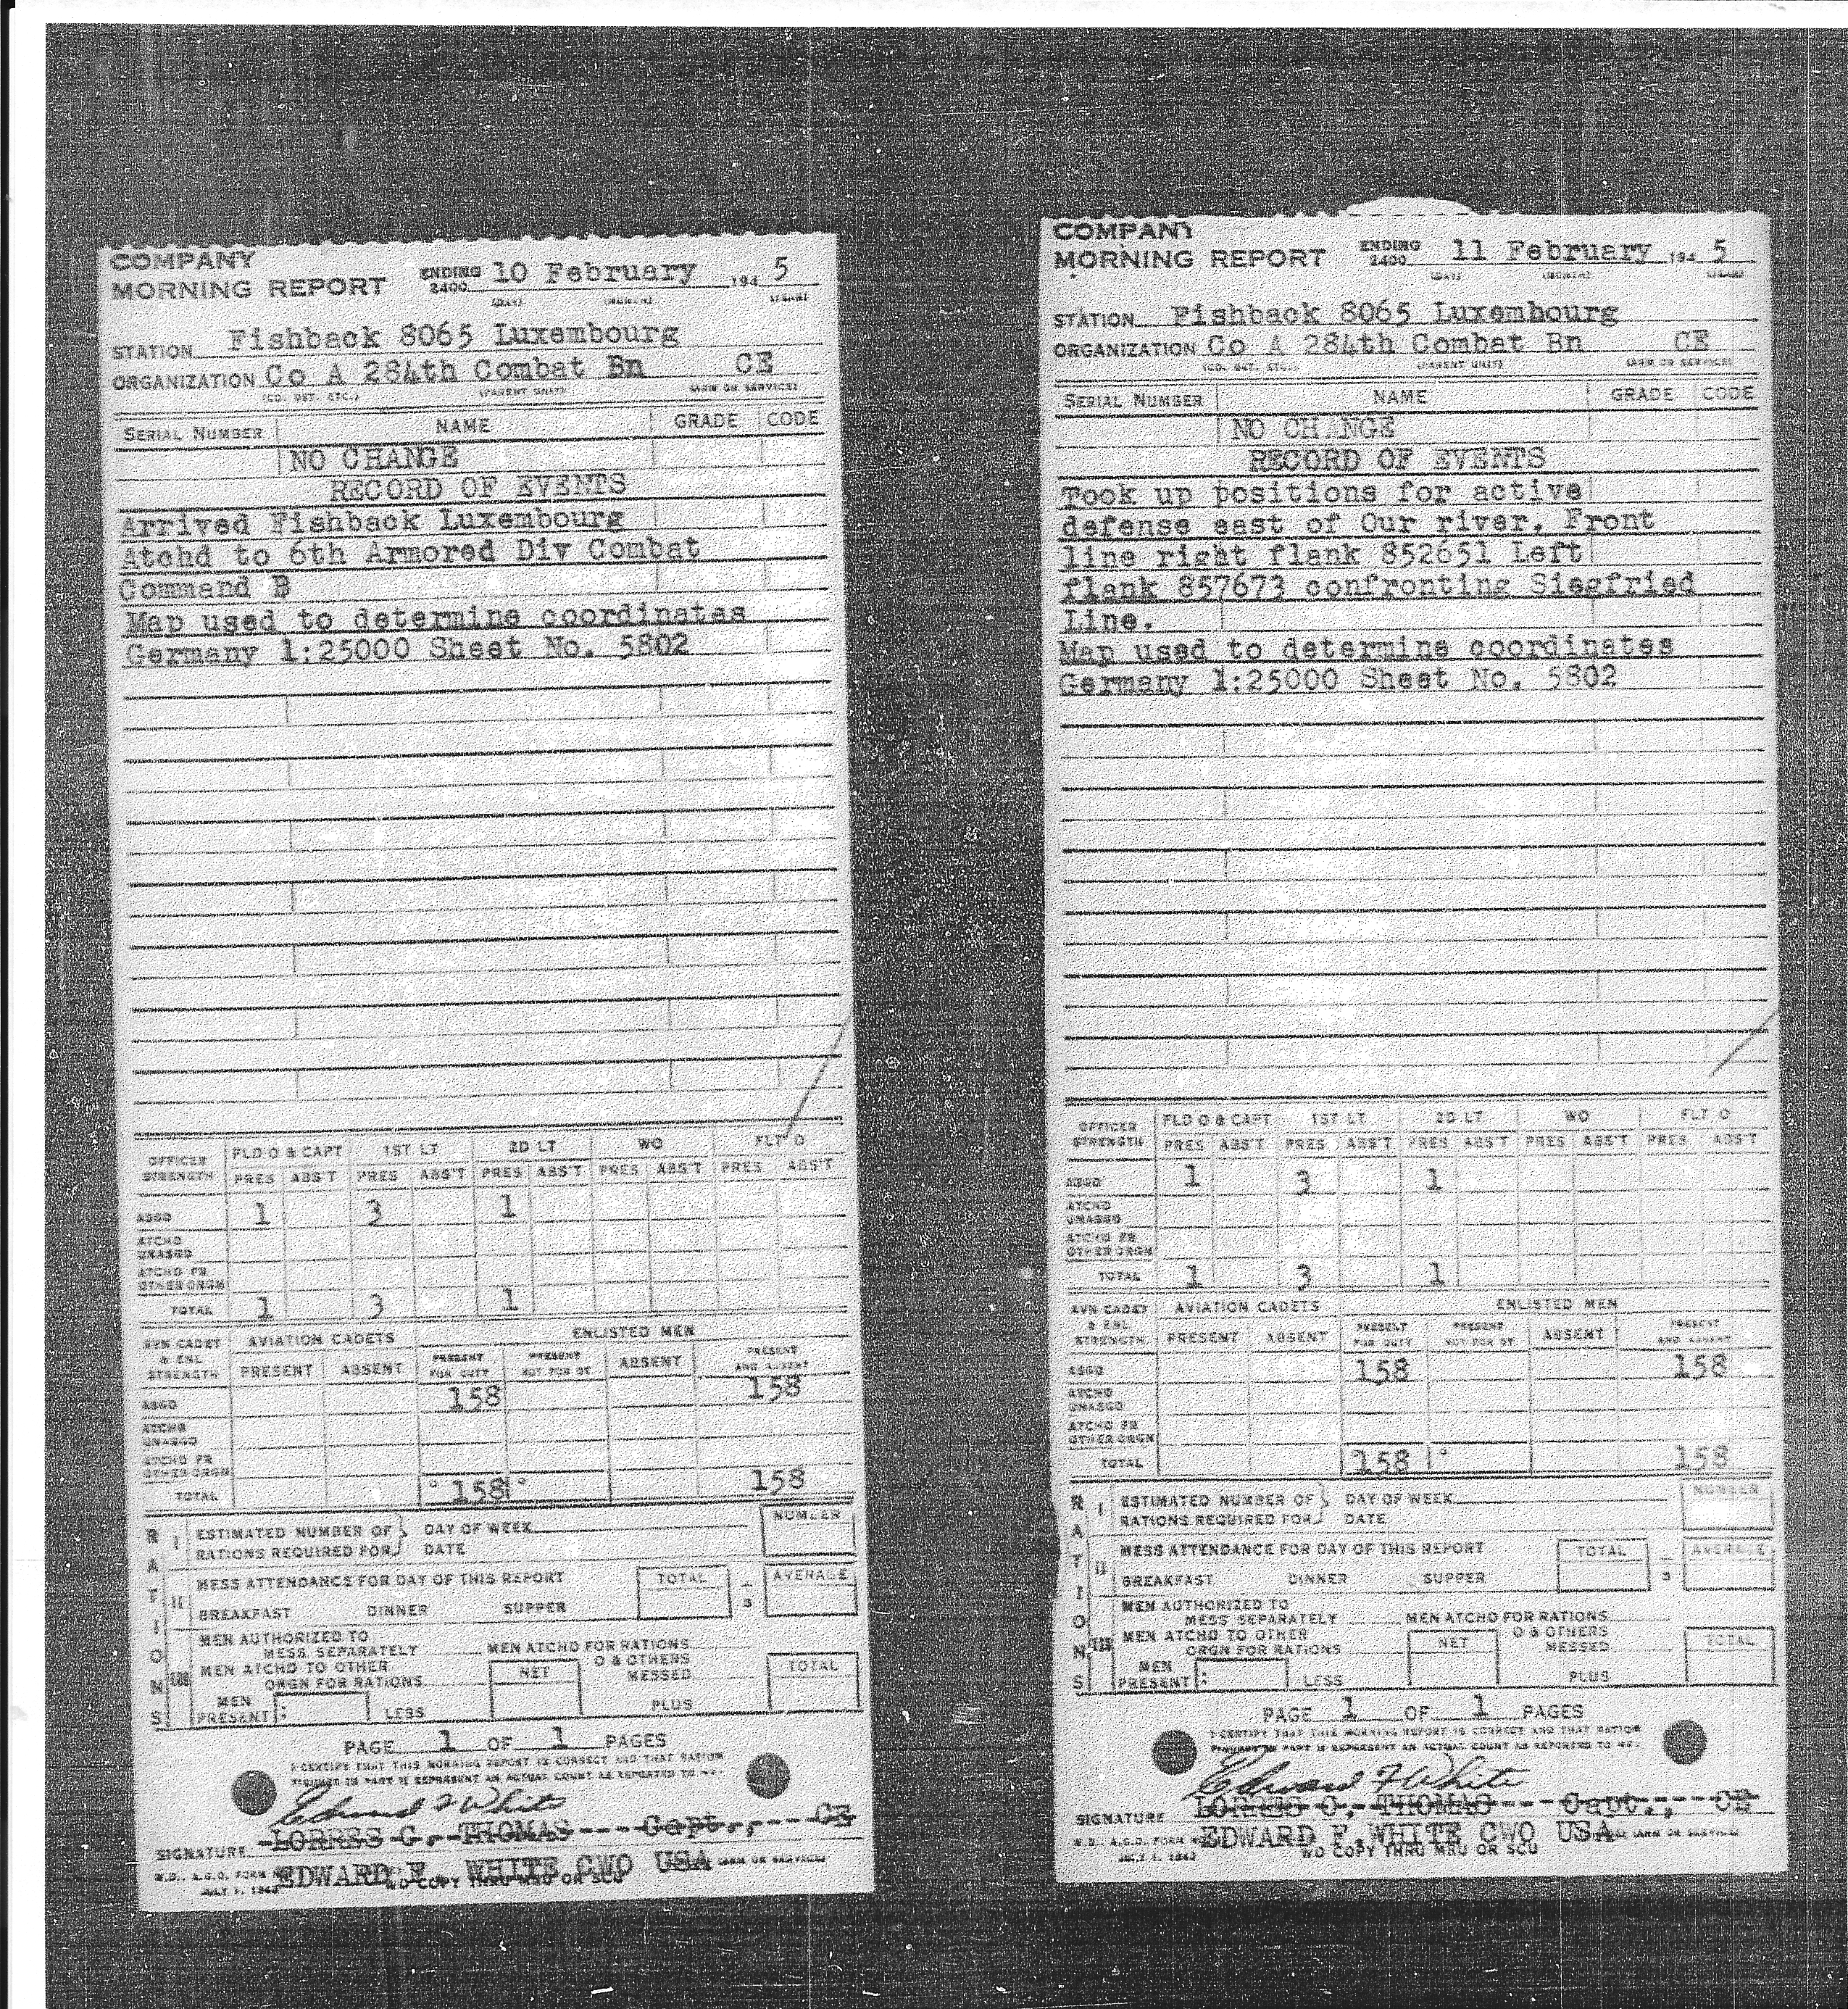 COMPANY
MORNING REPORT ENDING 2400 10 February 194 5
(DAY) (MONTH) (YEAR)
STATION Fishback 8065 Luxembourg
ORGANIZATION Co A 284th Combat Bn CE
(CO. DET. ETC.) (PARENT UNIT) (ARM OR SERVICE)
SERIAL NUMBER NAME GRADE CODE
NO CHANGE
RECORD OF EVENTS
Arrived Fishback Luxembourg
Atchd to 6th Armored Div Combat
Command B
Map used to determine coordinates
Germany 1:25000 Sheet No. 5802
OFFICER STRENGTH FLD O & CAPT 1ST LT 2D LT WO FLT O
PRES ABS'T PRES ABS'T PRES ABS'T PRES ABS'T PRES ABS'T
ASGD 1 3 1
ATCHD UNASGD
ATCHD FR OTHER ORGN
TOTAL 1 3 1
AVN CADET & ENL STRENGTH AVIATION CADETS ENLISTED MEN
PRESENT ABSENT PRESENT FOR DUTY PRESENT NOT FOR DY ABSENT PRESENT AND ABSENT
ASGD 158 158
ATCHD UNASGD
ATCHD FR OTHER ORGN
TOTAL 158 158
RATIONS
I ESTIMATED NUMBER OF RATIONS REQUIRED FOR } DAY OF WEEK DATE NUMBER
II MESS ATTENDANCE FOR DAY OF THIS REPORT TOTAL AVERAGE
BREAKFAST DINNER SUPPER 3
III MEN AUTHORIZED TO MESS SEPARATELY MEN ATCHD FOR RATIONS
MEN ATCHD TO OTHER ORGN FOR RATIONS NET O & OTHERS MESSED TOTAL
MEN PRESENT : LESS PLUS
PAGE 1 OF 1 PAGES
I CERTIFY THAT THIS MORNING REPORT IS CORRECT AND THAT RATION
FIGURES IN PART III REPRESENT AN ACTUAL COUNT AS REPORTED TO ME.
Edward F White
SIGNATURE LORRES G. THOMAS---Capt.,---CE
W.D., A.G.O. FORM EDWARD F. WHITE CWO USA (ARM OR SERVICE)
JULY 1, 1943 WD COPY THRU MRU OR SCU
COMPANY
MORNING REPORT ENDING 2400 11 February 194 5
(DAY) (MONTH) (YEAR)
STATION Fishback 8065 Luxembourg
ORGANIZATION Co A 284th Combat Bn CE
(CO. DET. ETC.) (PARENT UNIT) (ARM OR SERVICE)
SERIAL NUMBER NAME GRADE CODE
NO CHANGE
RECORD OF EVENTS
Took up positions for active
defense east of Our river. Front
line right flank 852651 Left
flank 857673 confronting Siegfried
Line.
Map used to determine coordinates
Germany 1:25000 Sheet No. 5802
OFFICER STRENGTH FLD O & CAPT 1ST LT 2D LT WO FLT O
PRES ABS'T PRES ABS'T PRES ABS'T PRES ABS'T PRES ABS'T
ASGD 1 3 1
ATCHD UNASGD
ATCHD FR OTHER ORGN
TOTAL 1 3 1
AVN CADET & ENL STRENGTH AVIATION CADETS ENLISTED MEN
PRESENT ABSENT PRESENT FOR DUTY PRESENT NOT FOR DY ABSENT PRESENT AND ABSENT
ASGD 158 158
ATCHD UNASGD
ATCHD FR OTHER ORGN
TOTAL 158 158
RATIONS
I ESTIMATED NUMBER OF RATIONS REQUIRED FOR } DAY OF WEEK DATE NUMBER
II MESS ATTENDANCE FOR DAY OF THIS REPORT TOTAL AVERAGE
BREAKFAST DINNER SUPPER 3
III MEN AUTHORIZED TO MESS SEPARATELY MEN ATCHD FOR RATIONS
MEN ATCHD TO OTHER ORGN FOR RATIONS NET O & OTHERS MESSED TOTAL
MEN PRESENT : LESS PLUS
PAGE 1 OF 1 PAGES
I CERTIFY THAT THIS MORNING REPORT IS CORRECT AND THAT RATION
FIGURES IN PART III REPRESENT AN ACTUAL COUNT AS REPORTED TO ME.
Edward F White
SIGNATURE LORRES G. THOMAS---Capt.,---CE
W.D., A.G.O. FORM EDWARD F. WHITE CWO USA (ARM OR SERVICE)
JULY 1, 1943 WD COPY THRU MRU OR SCU